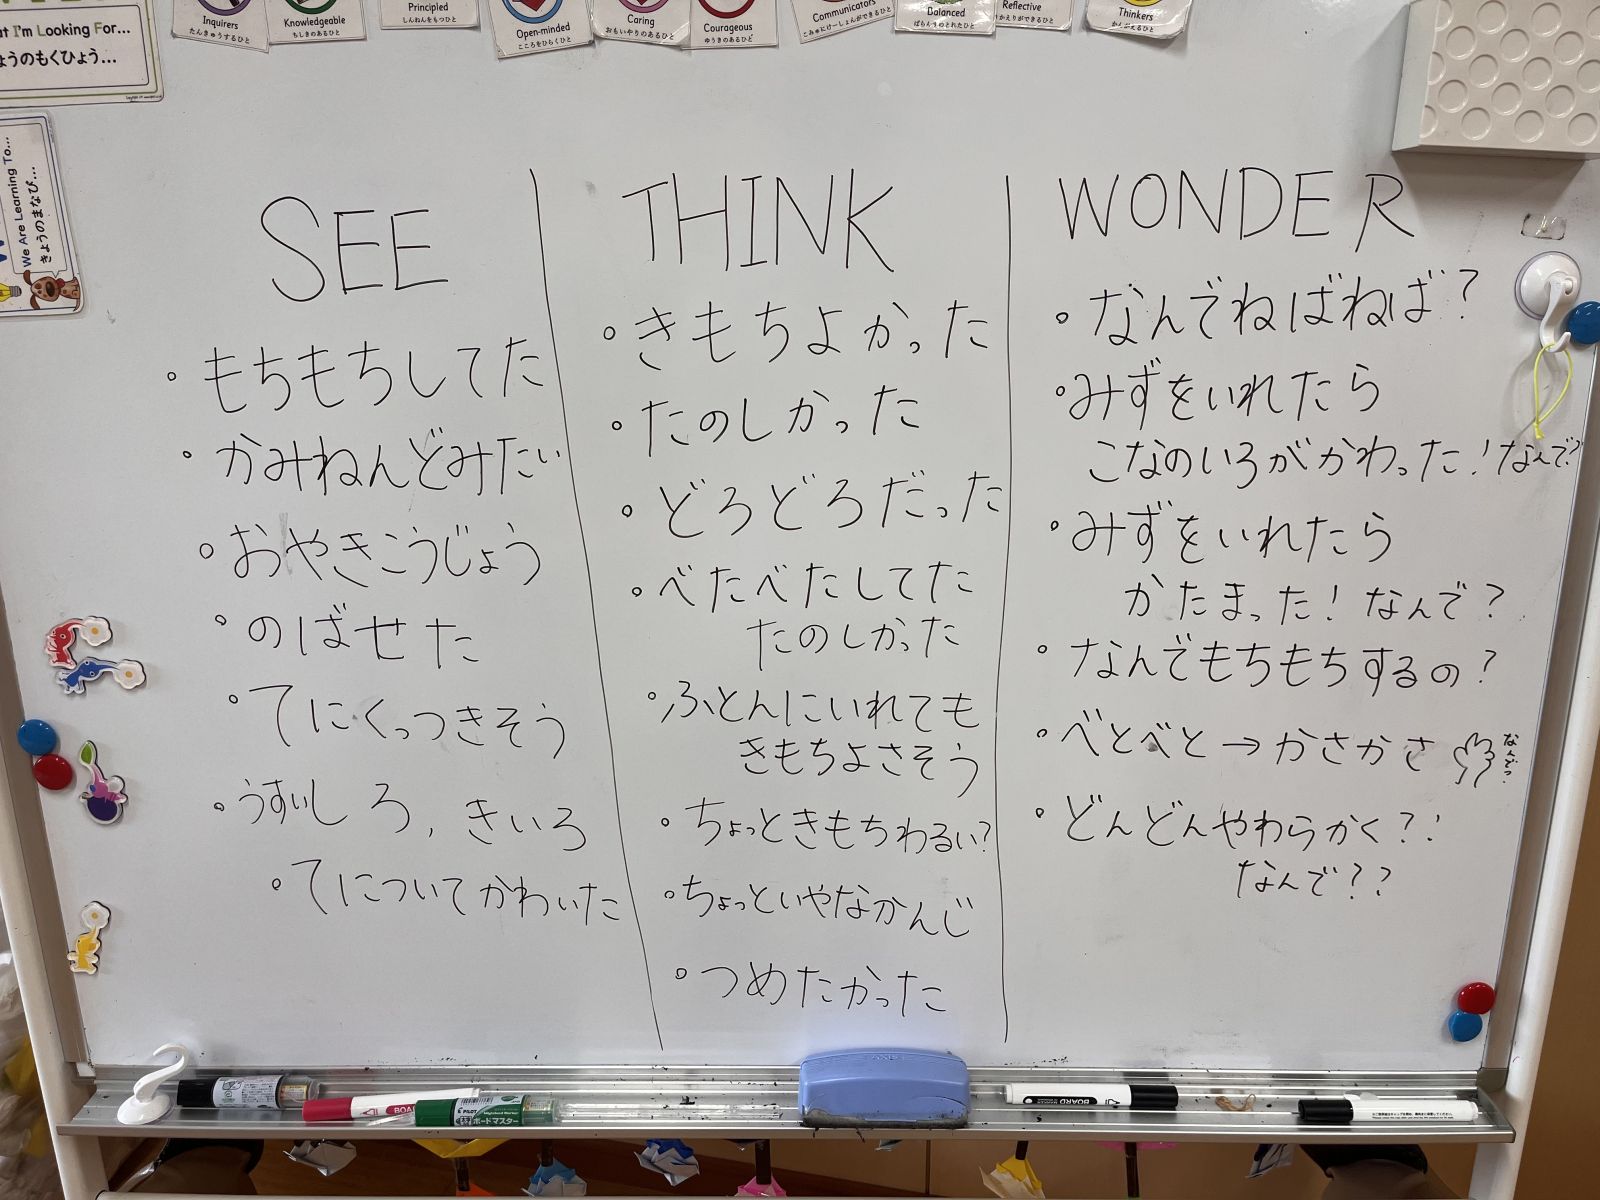 Inquirers
たんきゅうするひと
Knowledgeable
ちしきのあるひと
Principled
しんねんをもつひと
Open-minded
こころをひらくひと
Caring
おもいやりのあるひと
Courageous
ゆうきのあるひと
Communicators
こみゅにけーしょんができるひと
Balanced
ばらんすのとれたひと
Reflective
かえりができるひと
Thinkers
かんがえるひと
at I'm Looking For...
ょうのもくひょう...
We Are Learning To...
きょうのまなび...
SEE
。もちもちしてた
。かみねんどみたい
。おやきこうじょう
。のばせた
。てにくっつきそう
。うすいしろ、きいろ
。てについてかわいた
THINK
。きもちよかった
。たのしかった
。どろどろだった
。べたべたしてた
たのしかった
。ふとんにいれても
きもちよさそう
。ちょっときもちわるい?
。ちょっといやなかんじ
。つめたかった
WONDER
。なんでねばねば?
。みずをいれたら
こなのいろがかわった!なんで?
。みずをいれたら
かたまった!なんで?
。なんでもちもちするの?
。べとべと→かさかさ なんで?
。どんどんやわらかく?!
なんで??
BOARD
PILOT
ボードマスター
BOARD